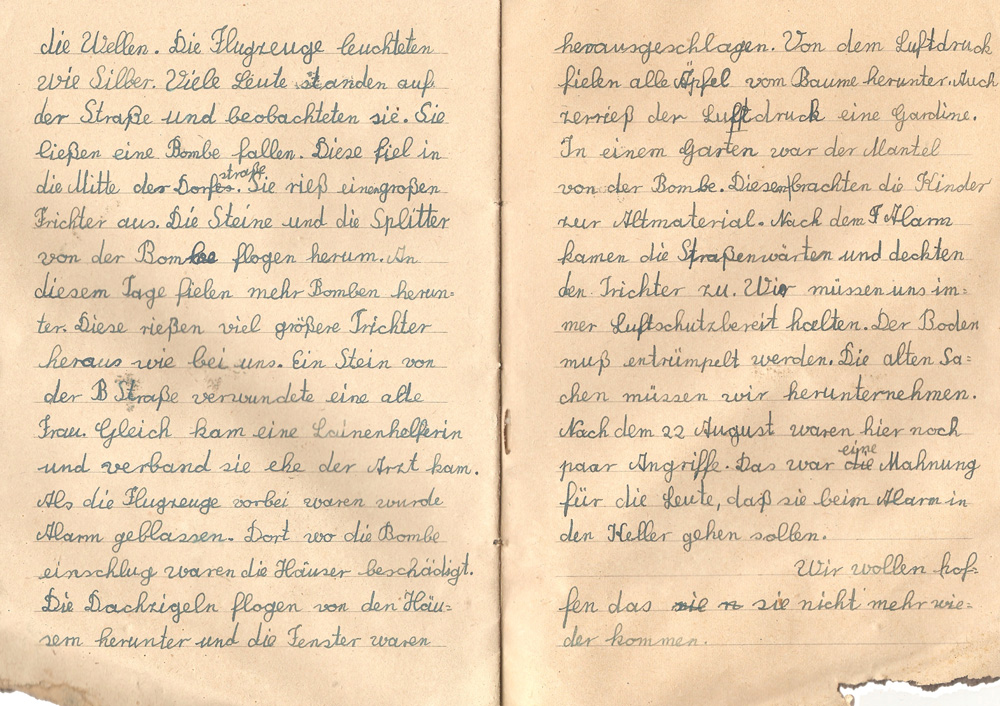 die Wellen. Die Flugzeuge leuchteten
wie Silber. Viele Leute standen auf
der Straße und beobachteten sie. Sie
ließen eine Bombe fallen. Diese fiel in
die Mitte der Dorfstraße. Sie rieß einen großen
Trichter aus. Die Steine und die Splitter
von der Bombe flogen herum. An
diesem Tage fielen mehr Bomben herun=
ter. Diese rießen viel größere Trichter
heraus wie bei uns. Ein Stein von
der B Straße verwundete eine alte
Frau. Gleich kam eine Lainenhelferin
und verband sie ehe der Arzt kam.
Als die Flugzeuge vorbei waren wurde
Alarm geblassen. Dort wo die Bombe
einschlug waren die Häuser beschädigt.
Die Dachzigeln flogen von den Häu=
sern herunter und die Fenster waren
herausgeschlagen. Von dem Luftdruck
fielen alle Äpfel vom Baume herunter. Auch
zerrieß der Luftdruck eine Gardine.
In einem Garten war der Mantel
von der Bombe. Diesen brachten die Kinder
zur Altmaterial. Nach dem F Alarm
kamen die Straßenwärten und deckten
den Trichter zu. Wir müssen uns im=
mer Luftschutzbereit halten. Der Boden
muß entrümpelt werden. Die alten Sa=
chen müssen wir herunternehmen.
Nach dem 22 August waren hier noch
paar Angriffe. Das war eine Mahnung
für die Leute, daß sie beim Alarm in
den Keller gehen sollen.
Wir wollen hof=
fen das sie nicht mehr wie=
der kommen.